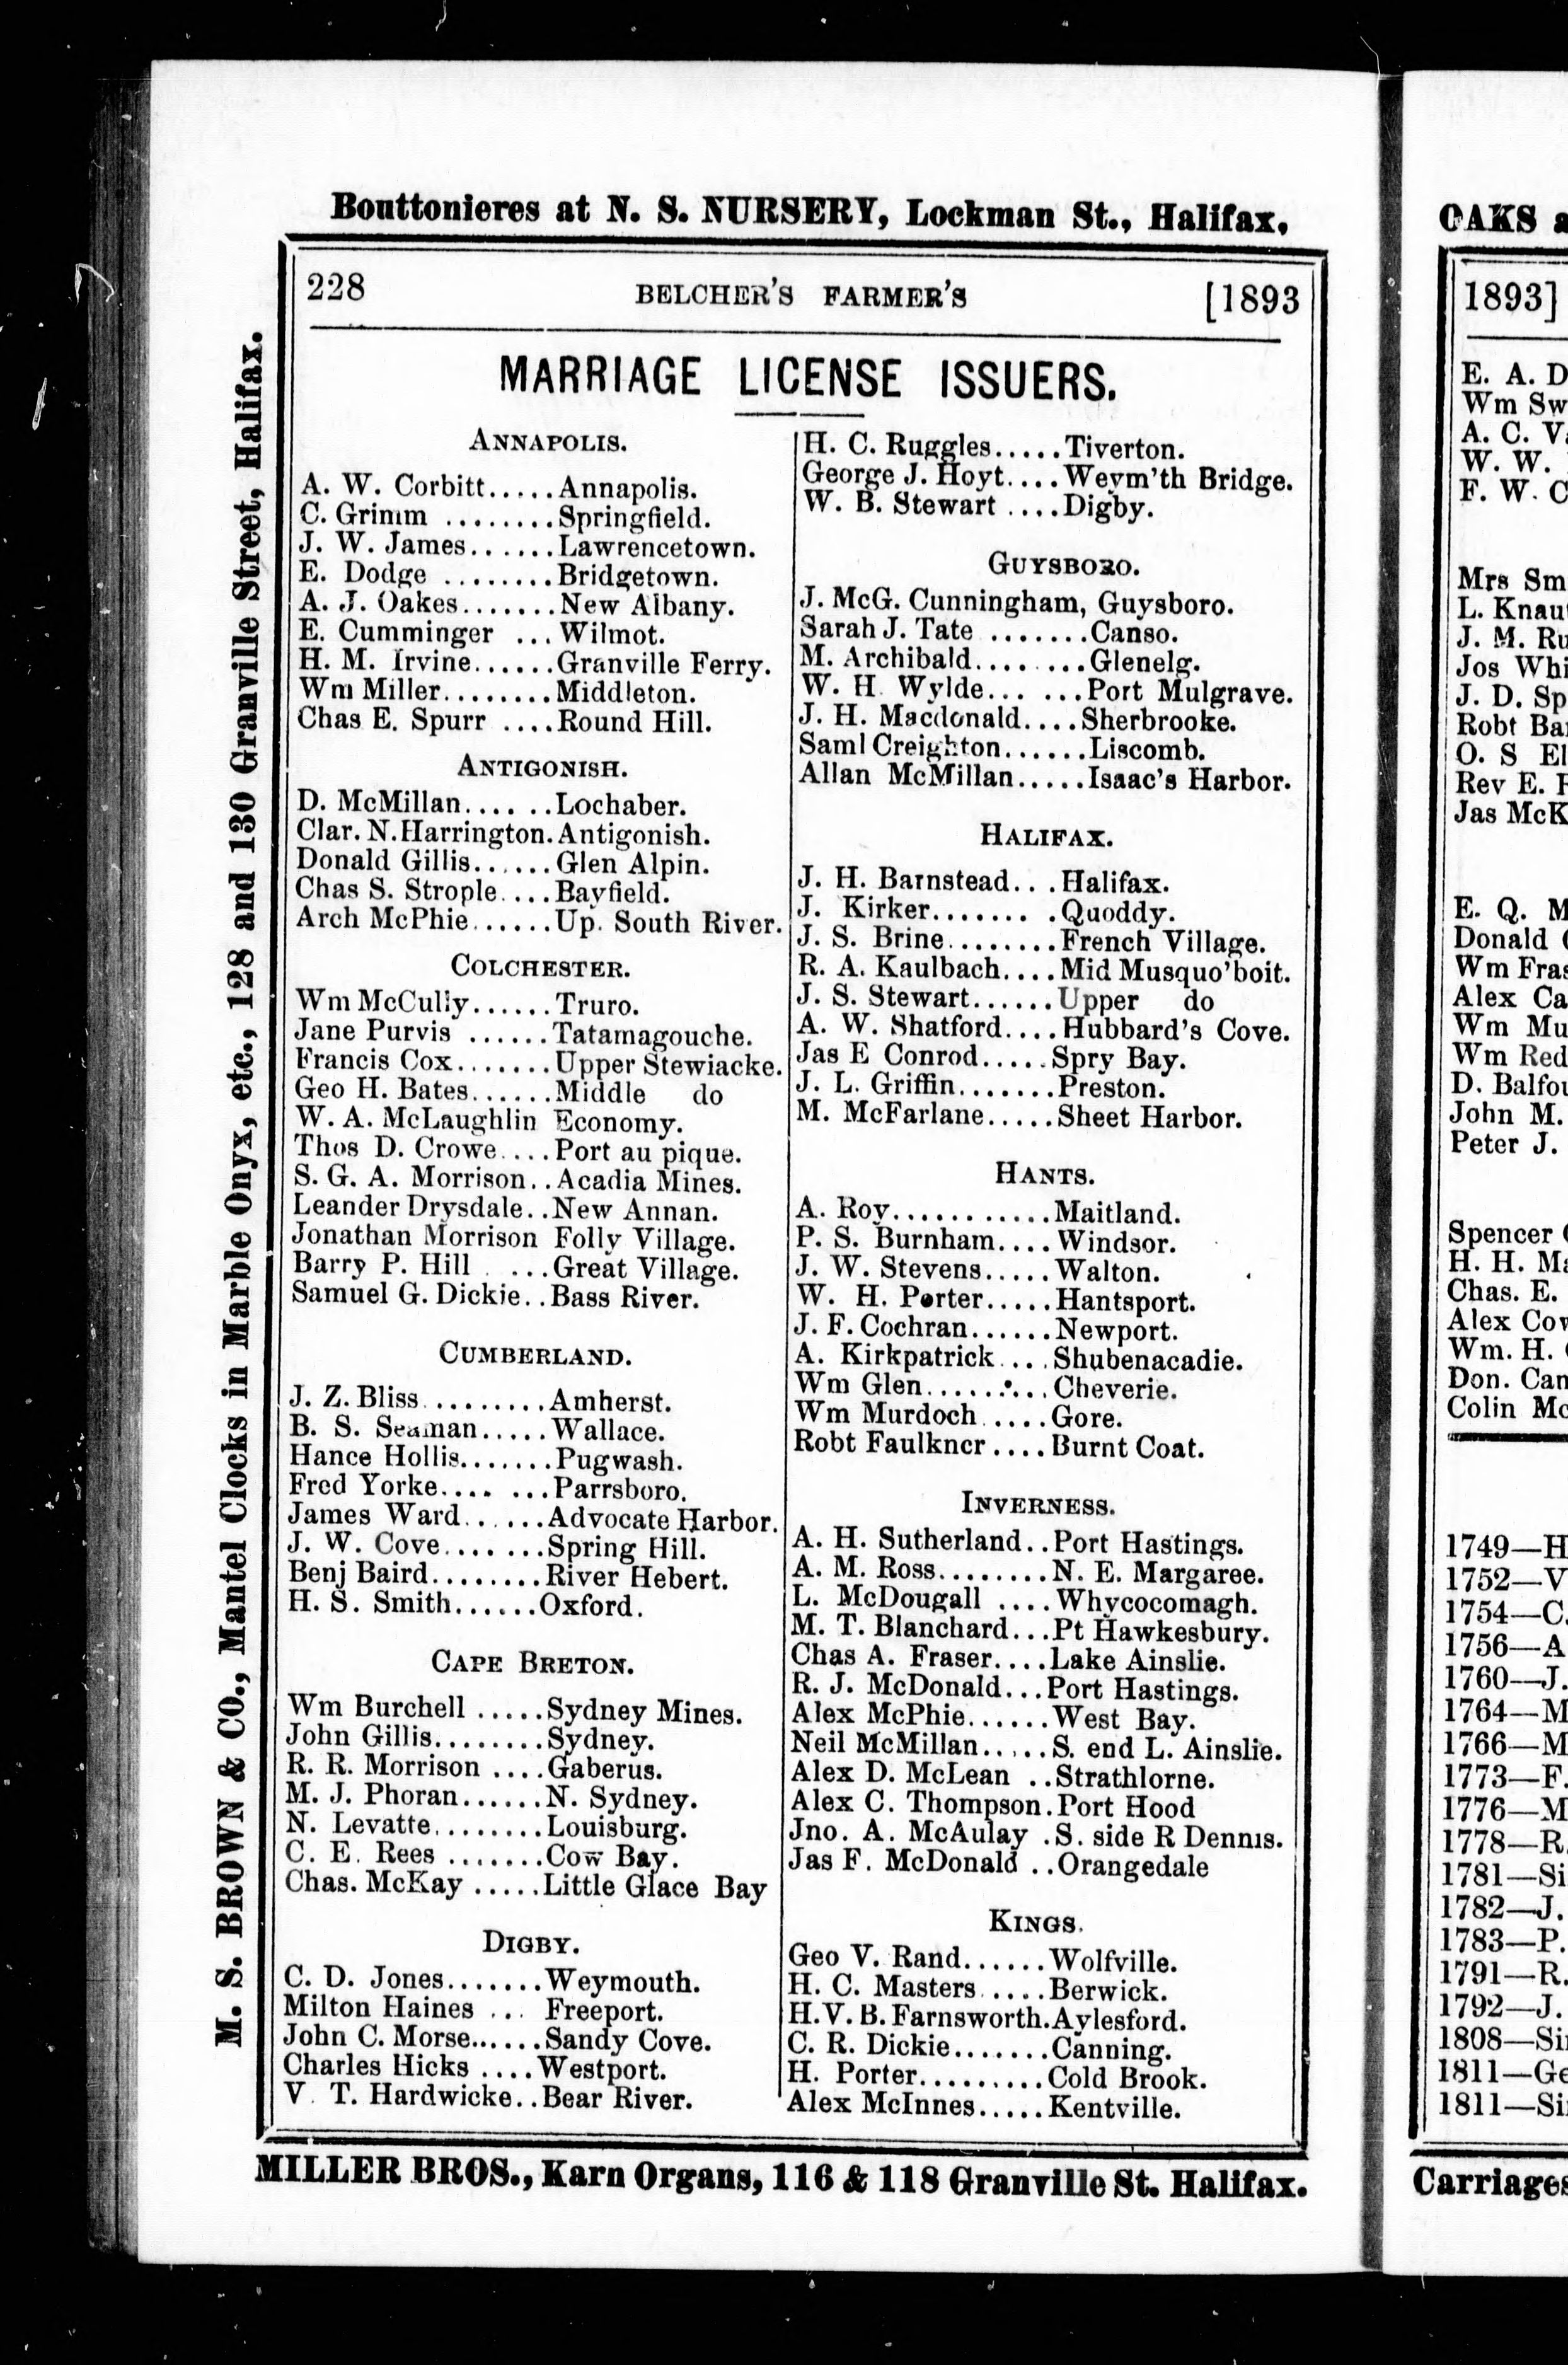 Bouttonieres at N. S. NURSERY, Lockman St., Halifax.
228 BELCHER'S FARMER'S [1893
MARRIAGE LICENSE ISSUERS.
ANNAPOLIS.
A. W. Corbitt.....Annapolis.
C. Grimm ........Springfield.
J. W. James......Lawrencetown.
E. Dodge ........Bridgetown.
A. J. Oakes.......New Albany.
E. Cumminger ...Wilmot.
H. M. Irvine......Granville Ferry.
Wm Miller........Middleton.
Chas E. Spurr ....Round Hill.
ANTIGONISH.
D. McMillan.... ..Lochaber.
Clar. N. Harrington.Antigonish.
Donald Gillis......Glen Alpin.
Chas S. Strople....Bayfield.
Arch McPhie......Up. South River.
COLCHESTER.
Wm McCully......Truro.
Jane Purvis ......Tatamagouche.
Francis Cox.......Upper Stewiacke.
Geo H. Bates......Middle do
W. A. McLaughlin Economy.
Thos D. Crowe....Port au pique.
S. G. A. Morrison..Acadia Mines.
Leander Drysdale..New Annan.
Jonathan Morrison Folly Village.
Barry P. Hill ...Great Village.
Samuel G. Dickie..Bass River.
CUMBERLAND.
J. Z. Bliss.........Amherst.
B. S. Seaman.....Wallace.
Hance Hollis.......Pugwash.
Fred Yorke.... ...Parrsboro.
James Ward......Advocate Harbor.
J. W. Cove.......Spring Hill.
Benj Baird........River Hebert.
H. S. Smith......Oxford.
CAPE BRETON.
Wm Burchell .....Sydney Mines.
John Gillis........Sydney.
R. R. Morrison ....Gaberus.
M. J. Phoran......N. Sydney.
N. Levatte........Louisburg.
C. E. Rees .......Cow Bay.
Chas. McKay .....Little Glace Bay
DIGBY.
C. D. Jones.......Weymouth.
Milton Haines ... Freeport.
John C. Morse......Sandy Cove.
Charles Hicks ....Westport.
V. T. Hardwicke..Bear River.
H. C. Ruggles.....Tiverton.
George J. Hoyt....Weym'th Bridge.
W. B. Stewart ....Digby.
GUYSBORO.
J. McG. Cunningham, Guysboro.
Sarah J. Tate .......Canso.
M. Archibald.... ....Glenelg.
W. H. Wylde... ...Port Mulgrave.
J. H. Macdonald....Sherbrooke.
Saml Creighton......Liscomb.
Allan McMillan.....Isaac's Harbor.
HALIFAX.
J. H. Barnstead...Halifax.
J. Kirker....... .Quoddy.
J. S. Brine........French Village.
R. A. Kaulbach....Mid Musquo'boit.
J. S. Stewart......Upper do
A. W. Shatford....Hubbard's Cove.
Jas E Conrod.....Spry Bay.
J. L. Griffin.......Preston.
M. McFarlane.....Sheet Harbor.
HANTS.
A. Roy...........Maitland.
P. S. Burnham....Windsor.
J. W. Stevens.....Walton.
W. H. Porter.....Hantsport.
J. F. Cochran......Newport.
A. Kirkpatrick....Shubenacadie.
Wm Glen.........Cheverie.
Wm Murdoch.....Gore.
Robt Faulkner....Burnt Coat.
INVERNESS.
A. H. Sutherland..Port Hastings.
A. M. Ross........N. E. Margaree.
L. McDougall ....Whycocomagh.
M. T. Blanchard...Pt Hawkesbury.
Chas A. Fraser....Lake Ainslie.
R. J. McDonald...Port Hastings.
Alex McPhie......West Bay.
Neil McMillan.....S. end L. Ainslie.
Alex D. McLean ..Strathlorne.
Alex C. Thompson.Port Hood
Jno. A. McAulay .S. side R Dennis.
Jas F. McDonald ..Orangedale
KINGS.
Geo V. Rand......Wolfville.
H. C. Masters.....Berwick.
H. V. B. Farnsworth.Aylesford.
C. R. Dickie.......Canning.
H. Porter.........Cold Brook.
Alex McInnes.....Kentville.
MILLER BROS., Karn Organs, 116 & 118 Granville St. Halifax.
M. S. BROWN & CO., Mantel Clocks in Marble Onyx, etc., 128 and 130 Granville Street, Halifax.
OAKS
1893]
E. A. D
Wm Sw
A. C.
W. W.
F. W. C
Mrs Sm
L. Knau
J. M. Ru
Jos Whi
J. D. Sp
Robt Ba
O. S El
Rev E.
Jas McK
E. Q. M
Donald
Wm Fras
Alex Ca
Wm Mu
Wm Red
D. Balfou
John M.
Peter J.
Spencer
H. H. Ma
Chas. E.
Alex Cov
Wm. H.
Don. Can
Colin Mc
1749—H
1752—V
1754—C
1756—A
1760—J.
1764—M
1766—M
1773—F.
1776—M
1778—R
1781—Si
1782—J.
1783—P.
1791—R.
1792—J.
1808—Si
1811—Ge
1811—Si
Carriages